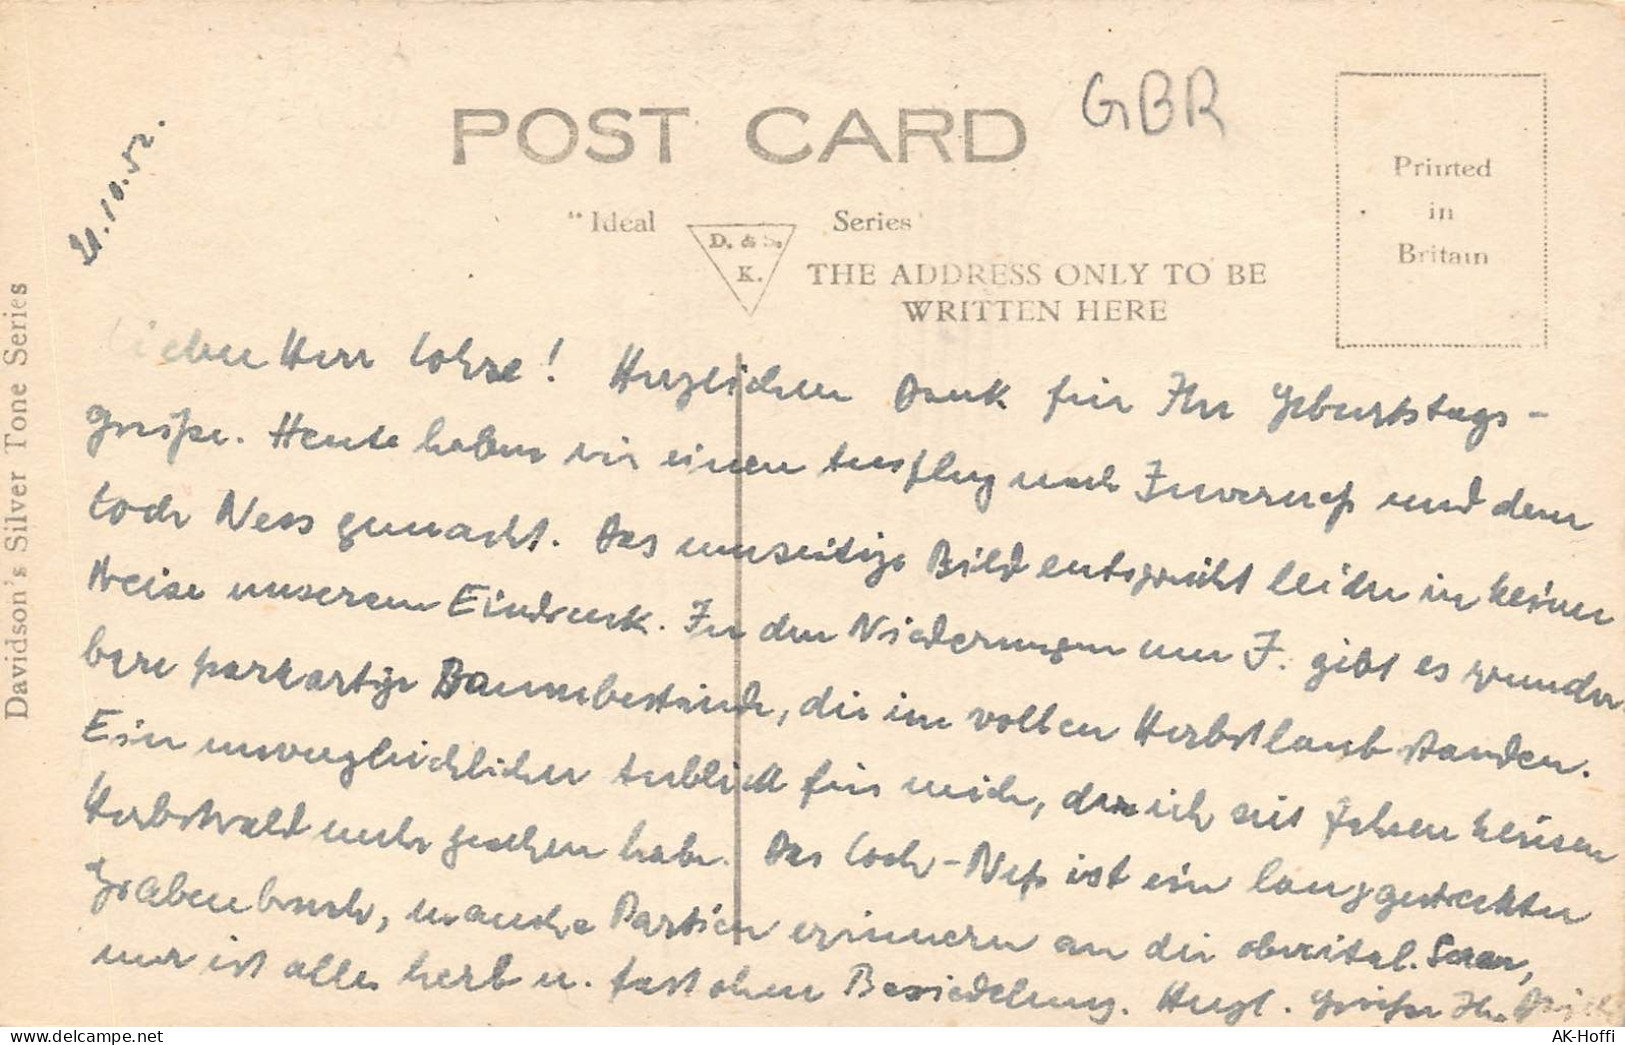 POST CARD
GBR
"Ideal Series"
D. & S.
K.
THE ADDRESS ONLY TO BE
WRITTEN HERE
Printed
in
Britain
Davidson's Silver Tone Series
21.10.52.
Lieber Herr Lohse! Herzlichen Dank für Ihre Geburtstags-
grüße. Heute haben wir einen Ausflug nach Inverneß und dem
Loch Ness gemacht. Das umseitige Bild entspricht leider in keiner
Weise unserem Eindruck. In den Niederungen um I. gibt es wunder-
bare parkartige Baumbestände, die im vollen Herbstlaub standen.
Ein unvergleichlicher Anblick für mich, der ich seit Jahren keinen
Herbstwald mehr gesehen habe. Das Loch-Neß ist ein langgestreckter
Grabenbruch, manche Partien erinnern an die oberital. Seen,
nur ist alles herb u. fast ohne Besiedelung. Herzl. Grüße Ihr
AK-Hoffi